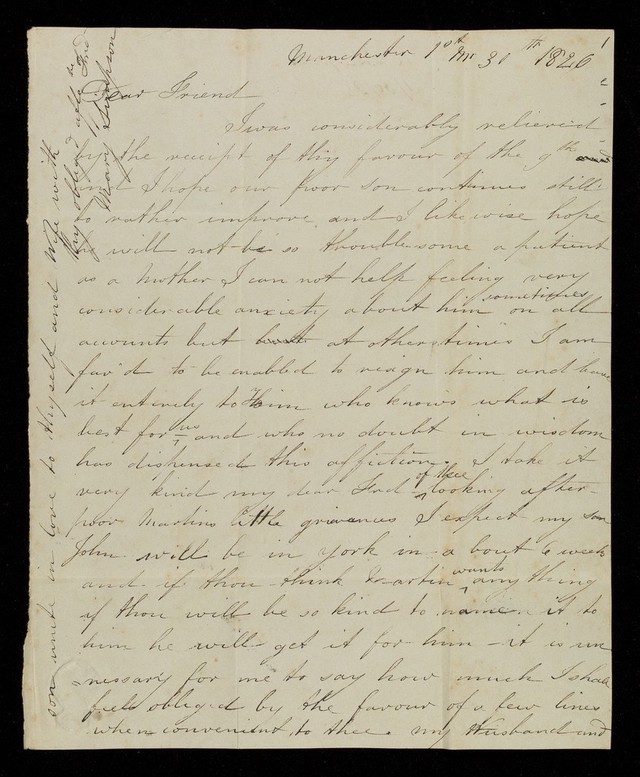 Manchester 1st Mo 30th 1826
Dear Friend
I was considerably relieved
by the receipt of thy favour of the 9th
and I hope our poor son continues still
to rather improve and I likewise hope
he will not be so trouble some a patient
as a Mother I can not help feeling very
considerable anxiety about him sometimes on all
accounts but at other times I am
fav'd to be enabled to resign him and leave
it entirely to Him who knows what is
best for us and who no doubt in wisdom
has dispensed this affliction. I take it
very kind my dear Frd of thee looking after
poor Martins little grievances I expect my son
John will be in york in a bout 6 weeks
and if thou think Martin wants any thing
if thou will be so kind to name it to
him he will get it for him - it is un
"nessary for me to say how much I shall
feel obliged by the favour of a few lines
when convenient to thee. my Husband and
son unite in love to thyself and Wife with
thy obliged affte Frd
Mary Simpson